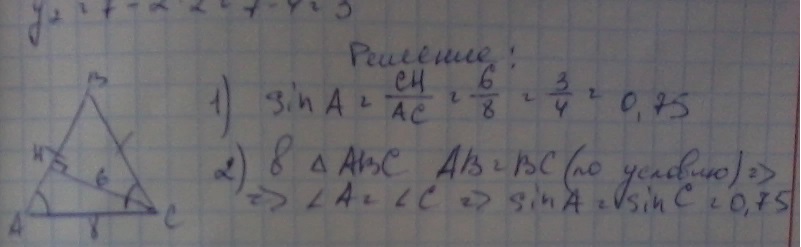 y₂ = 7 - 2·2 = 7 - 4 = 3
Решение:
1) sin A = CH/AC = 6/8 = 3/4 = 0,75
2) В △ ABC AB = BC (по условию) =>
=> ∠A = ∠C => sin A = sin C = 0,75
B
H
6
A
8
C